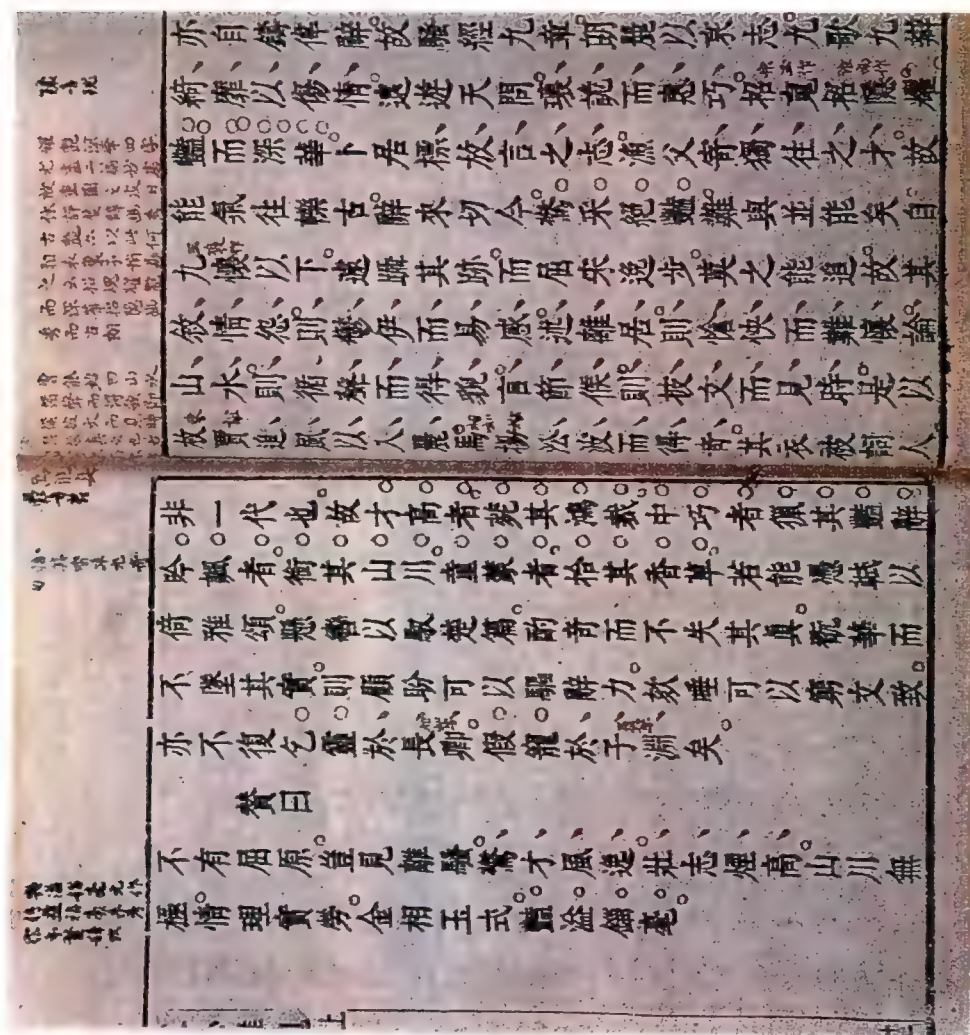 亦自鑄偉辭故騷經九章朗麗以哀志九歌九辯
綺靡以傷情。遠遊天問。瓌詭而惠巧。招䰟招隱。耀
豔而深華。卜居標放言之志。漁父寄獨往之才。故
能氣往轢古。辭來切今。驚采絕豔。難與並能矣。自
九懷以下。遽躡其跡。而屈宋逸步。莫之能追。故其
敘情怨。則鬱伊而易感。述離居。則愴怏而難懷。論
山水。則循聲而得貌。言節候。則披文而見時。是以
枚賈追風以入麗。馬揚沿波而得奇。其衣被詞人
非一代也。故才高者菀其鴻裁。中巧者獵其豔辭。
吟諷者銜其山川。童蒙者拾其香草。若能憑軾以
倚雅頌。懸轡以馭楚篇。酌奇而不失其真。翫華而
不墜其實。則顧盼可以驅辭力。欬唾可以窮文致。
亦不復乞靈於長卿。假寵於子淵矣。
贊曰
不有屈原。豈見離騷。驚才風逸。壯志煙高。山川無
極。情理實勞。金相玉式。豔溢錙毫。